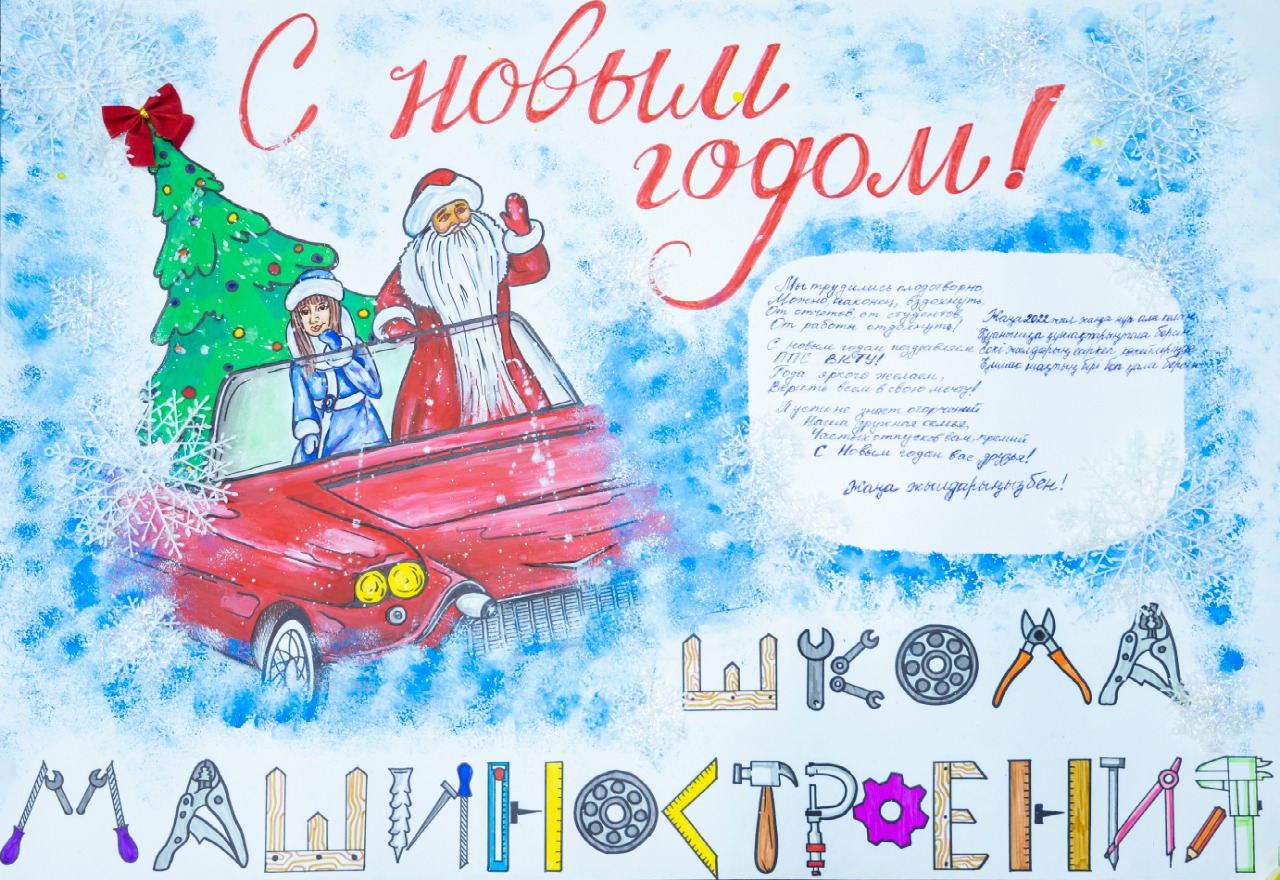 С новым
годом!
Мы трудились плодотворно,
Можно, наконец, вздохнуть,
От отчетов, от студентов,
От работы отдохнуть!
С новым годом поздравляем
ППС ВКТУ!
Года яркого желаем,
Верьте всем в свою мечту!
Пусть не знает огорчений
Наша дружная семья,
Частых отпусков вам, премий
С Новым годом вас друзья!
Жаңа 2022 жыл жаңа нұр ала келсін
Жаңа жылдарыңызбен!
ШКОЛА
МАШИНОСТРОЕНИЯ